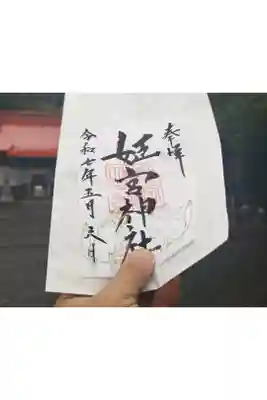 奉拝
姫宮神社
令和七年五月 日